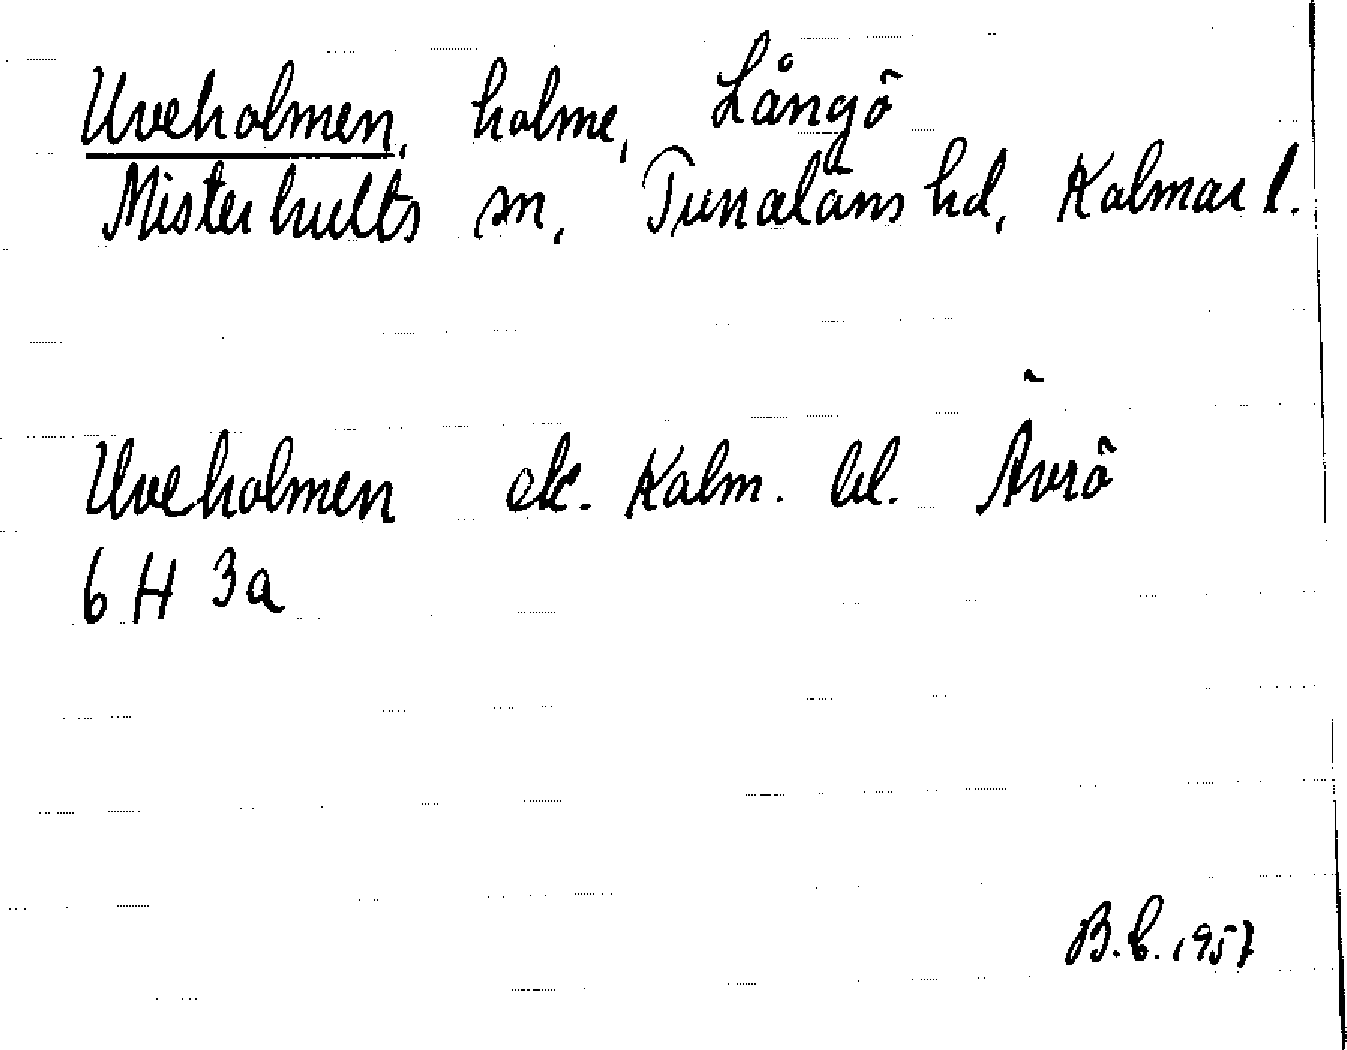 Uveholmen, holme, Långö
Misterhults sn, Tunaläns hd, Kalmar l.
Uveholmen ek. Kalm. bl. Ävrö
6 H 3a
B.C. 1957